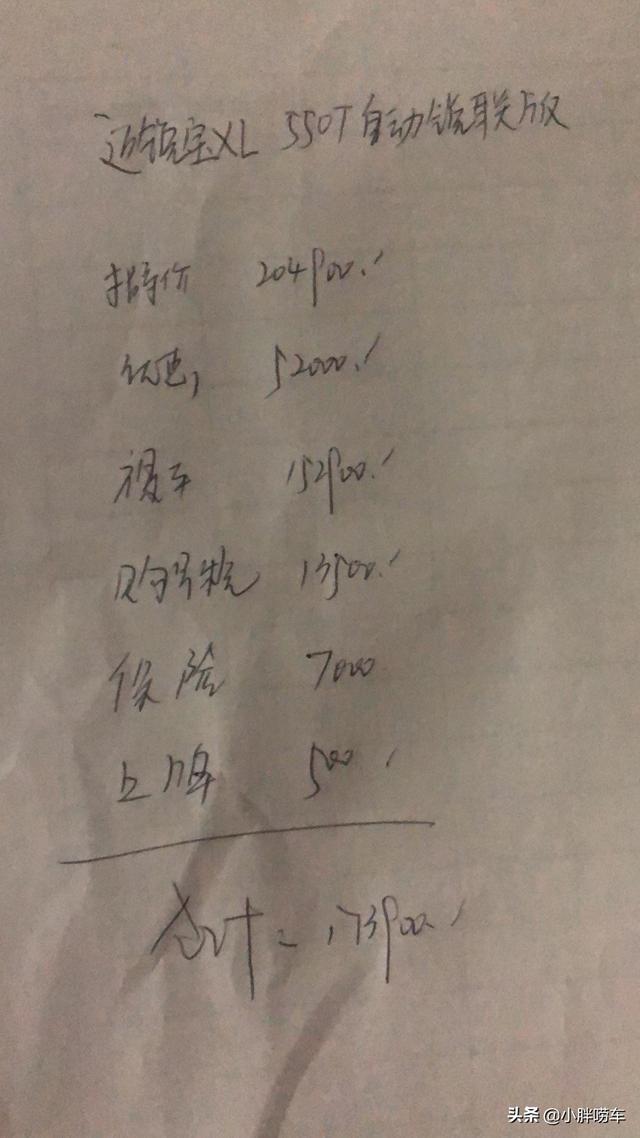 迈锐宝XL 550T自动锐联版
指导价 204900.
优惠, 52000.
裸车 152900.
购置税 13500.
保险 7000
上牌 500.
总计= 173900.
头条 @小胖唠车